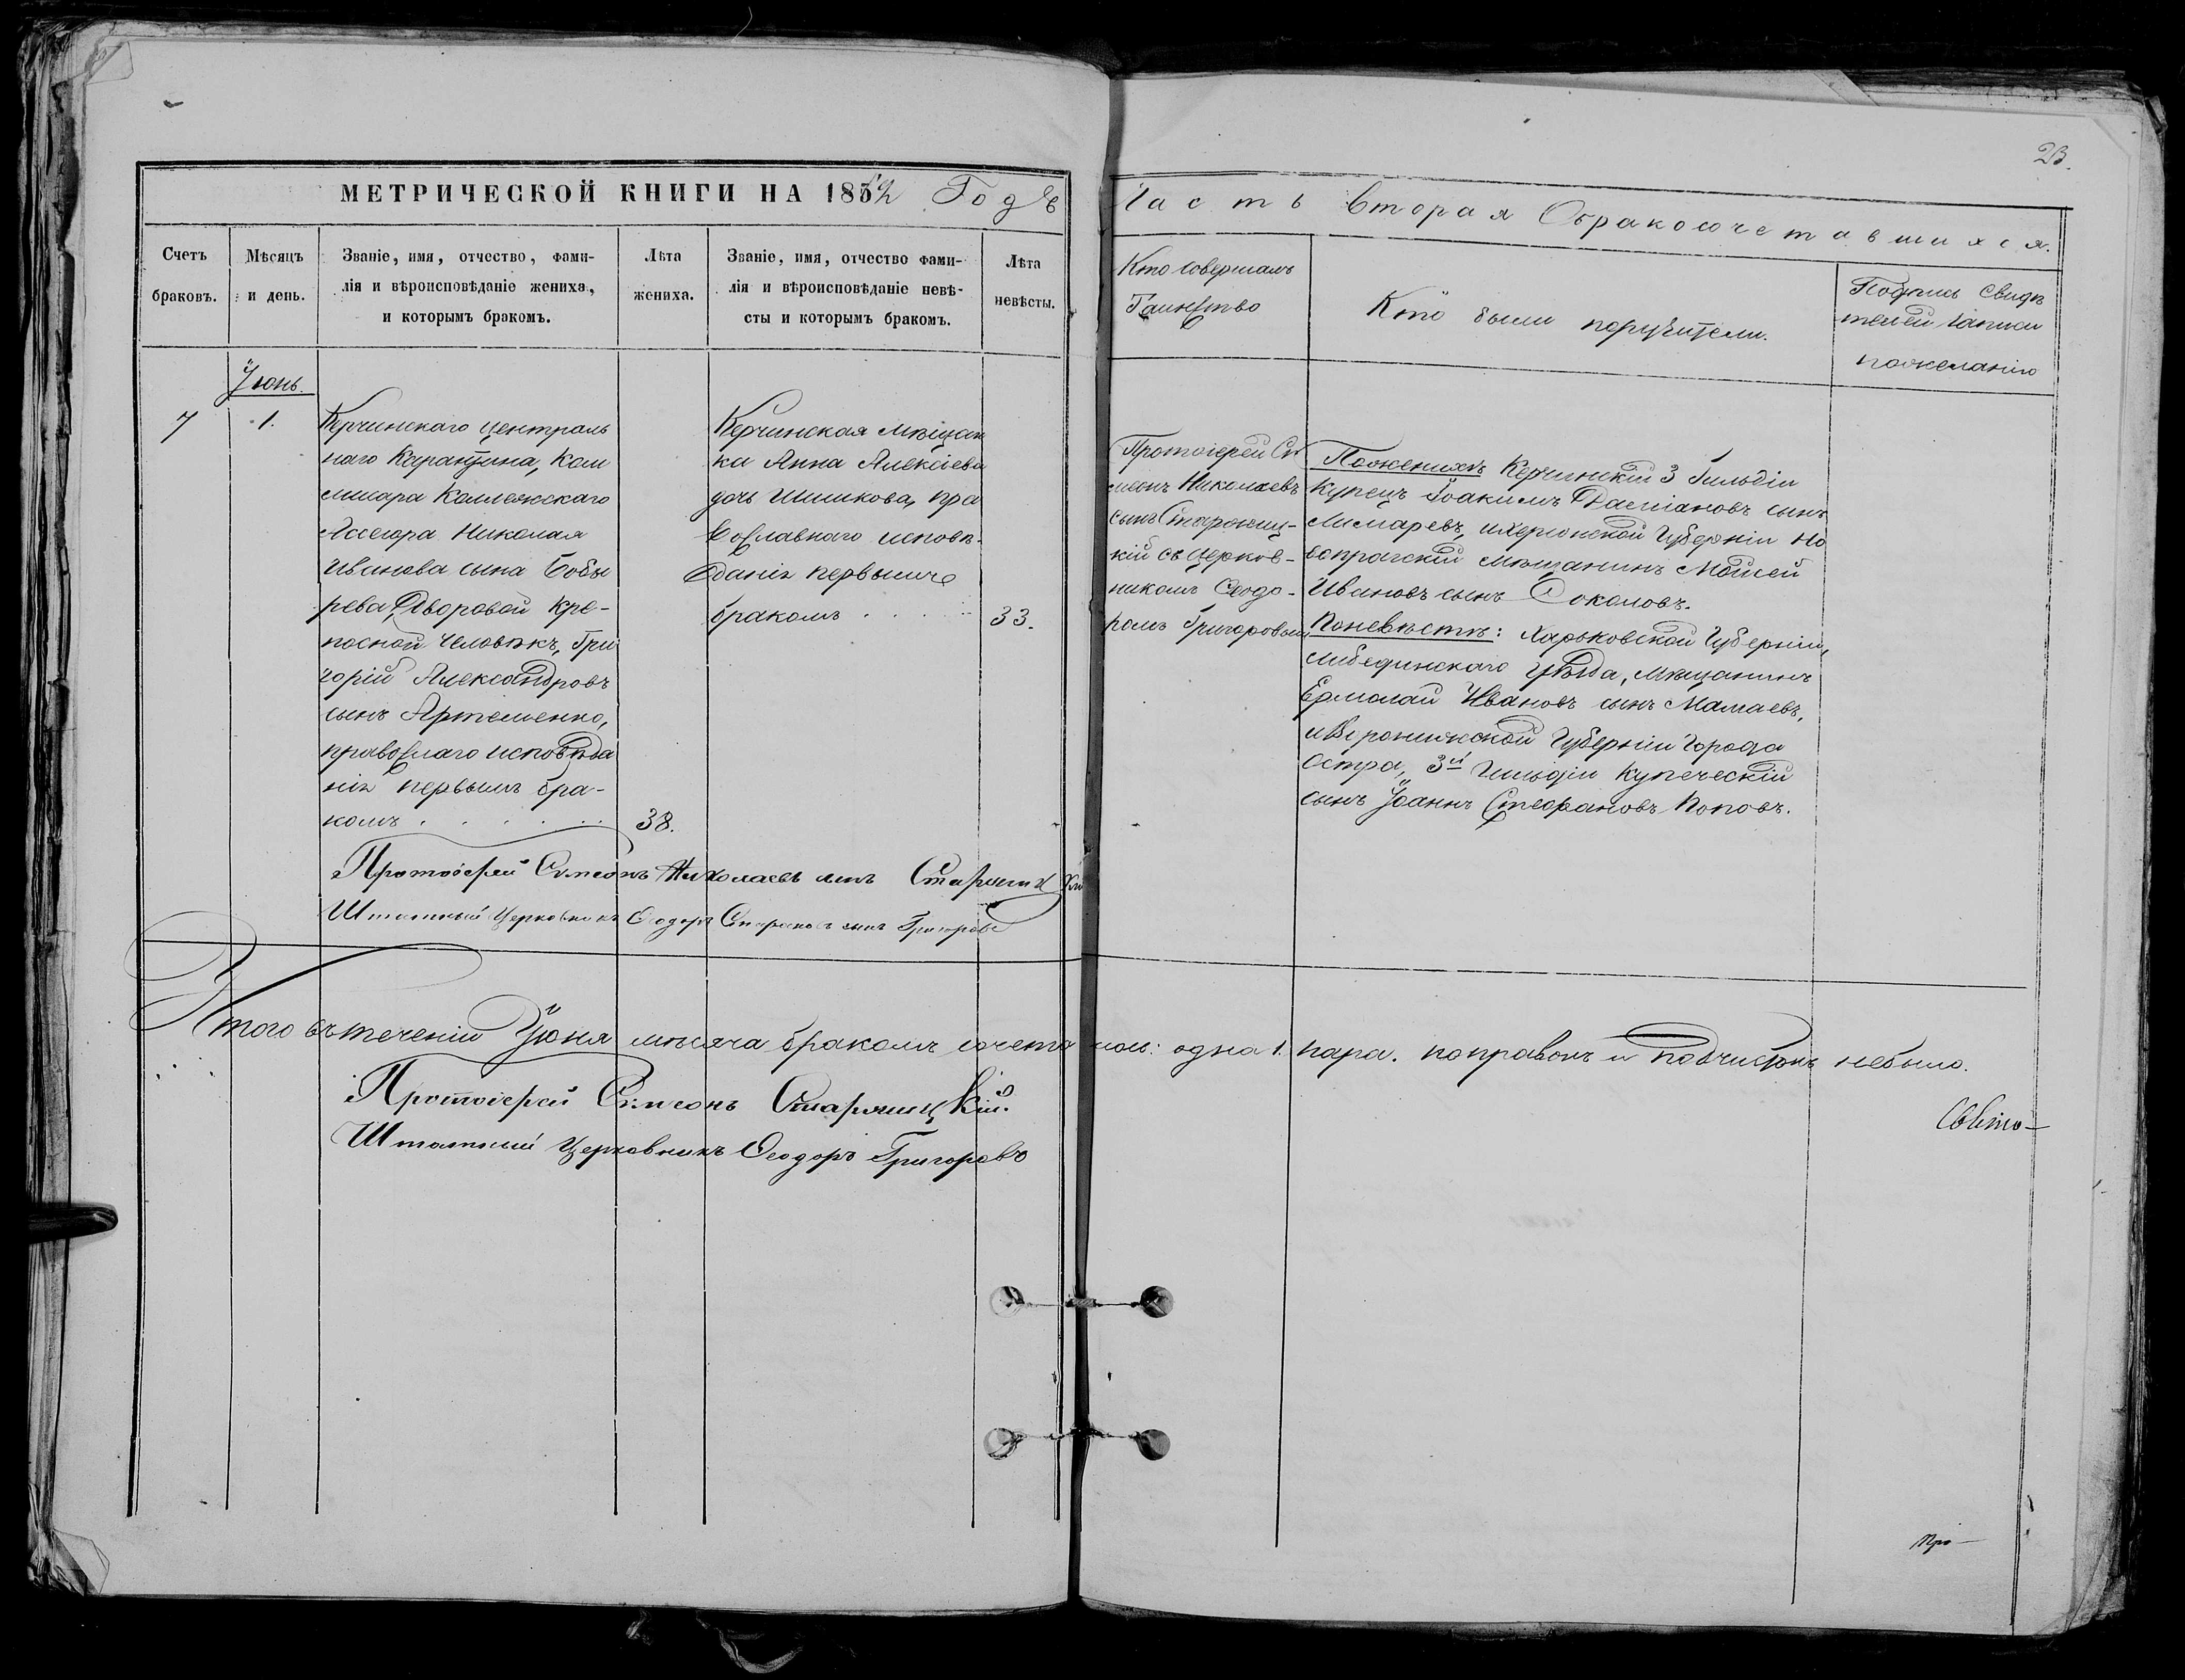 23.
МЕТРИЧЕСКОЙ КНИГИ НА 1852 Годъ
Часть вторая О бракосочетавшихся.
Счетъ
браковъ.
Мѣсяцъ
и день.
Званіе, имя, отчество, фами-
лія и вѣроисповѣданіе жениха,
и которымъ бракомъ.
Лѣта
жениха.
Званіе, имя, отчество фами-
лія и вѣроисповѣданіе невѣ-
сты и которымъ бракомъ.
Лѣта
невѣсты.
Кто совершалъ
Таинство
Кто были поручители.
Подпись свидѣ
телей записи
пожеланію
Іюнь.
7
1.
Керчинскаго централь
наго Карантина, Ком
мисара Коллежскаго
Ассесора Николая
Иванова сына Бобы
рева, Дворовой кре-
посной человѣкъ, Гри
горій Александровъ
сынъ Артеменко,
православнаго исповѣда
нія первымъ бра-
комъ . . . . . .
38.
Керчинская мѣщан
ка Анна Алексіева
дочь Шишкова, пра
вославнаго исповѣ-
данія первымъ
бракомъ . . .
33.
Протоіерей Сѵ
меонъ Николаевъ
сынъ Старониц-
кій съ церков-
никомъ Ѳеодо-
ромъ Григоровым
Поженихѣ Керчинскій 3 Гильдіи
Купецъ Іоакимъ Даміановъ сынъ
Лимаревъ, ихерсонской Губерніи Но
вопрагскій мѣщанинъ Моисей
Ивановъ сынъ Соколовъ.
Поневѣстѣ: Харьковской Губерніи,
Лебединскаго уѣзда, мѣщанинъ
Ермолай Ивановъ сынъ Мамаевъ,
и Воронижской Губерніи города
Остра, 3й Гильдіи купеческій
сынъ Іоаннъ Стефановъ Поповъ.
Протоіерей Сѵмеонъ Николаевъ сынъ Староницкій
Штатный Церковникъ Ѳеодоръ сынъ Григоровъ
Итого въ теченіи Іюня мѣсяца бракомъ сочеталось: одна 1. пара. поправокъ и подчистокъ небыло.
Протоіерей Сѵмеонъ Староницкій.
Штатный Церковникъ Ѳеодоръ Григоровъ